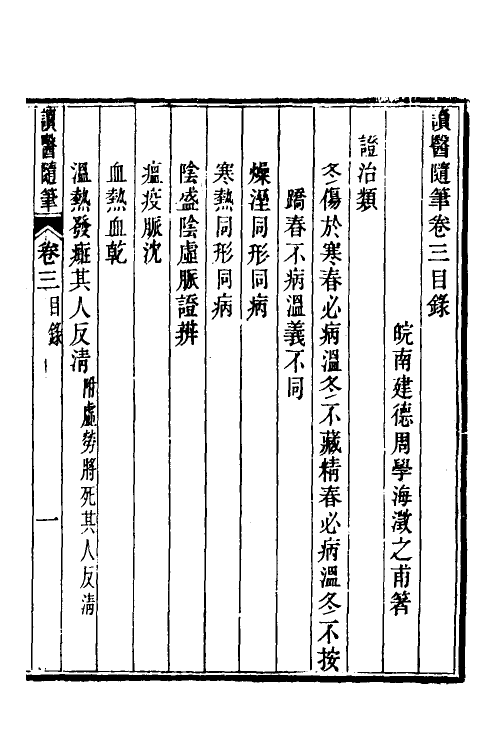 讀醫隨筆卷三目錄
皖南建德周學海澂之甫著
證治類
冬傷於寒春必病溫冬不藏精春必病溫冬不按
蹻春不病溫義不同
燥溼同形同病
寒熱同形同病
陰盛陰虛脈證辨
瘟疫脈沈
血熱血乾
溫熱發癍其人反清附虛勞將死其人反清
讀醫隨筆 卷三目錄 一